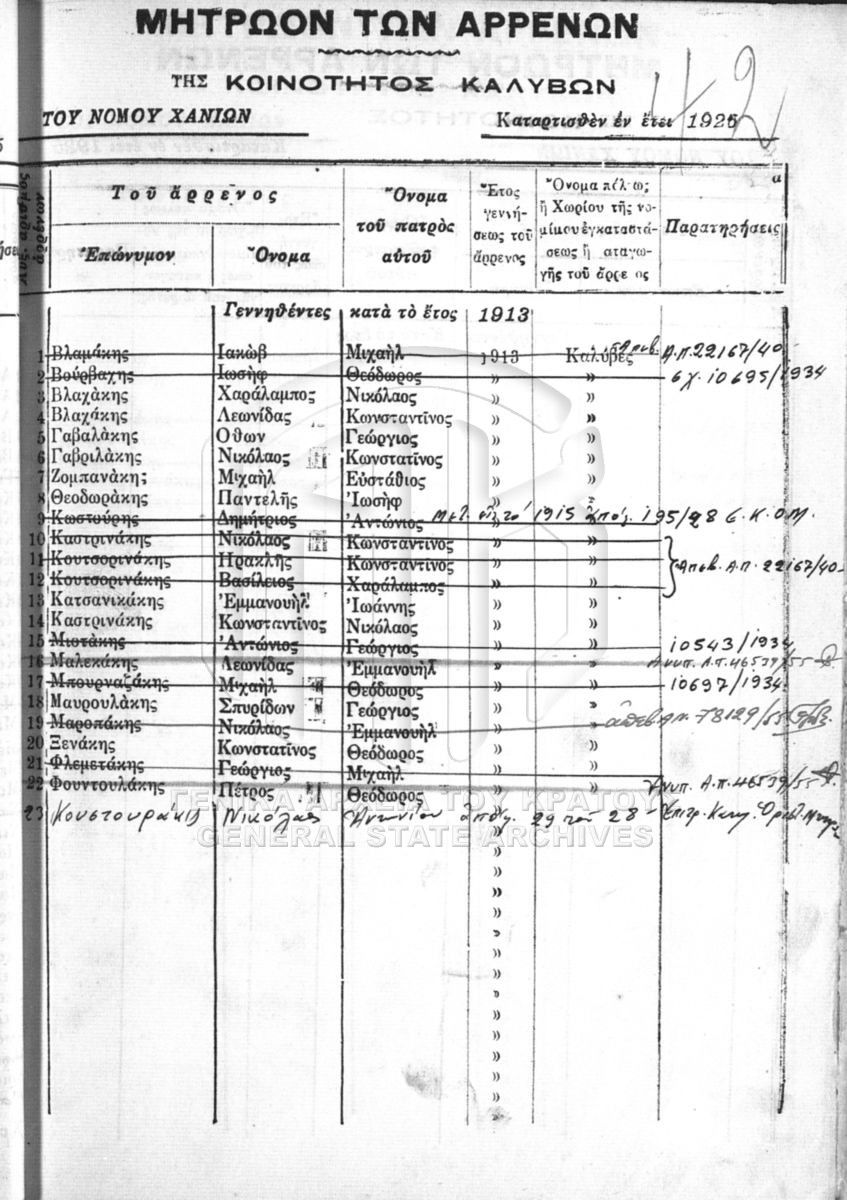 ΜΗΤΡΩΟΝ ΤΩΝ ΑΡΡΕΝΩΝ
ΤΗΣ ΚΟΙΝΟΤΗΤΟΣ ΚΑΛΥΒΩΝ
42
ΤΟΥ ΝΟΜΟΥ ΧΑΝΙΩΝ Καταρτισθὲν ἐν ἔτει 1925
Τοῦ ἄρρενος Ὄνομα τοῦ πατρὸς αὐτοῦ Ἔτος γεννήσεως τοῦ ἄρρενος Ὄνομα ἢ Χωρίου τῆς νομίμου ἐγκαταστάσεως ἢ αταγωγῆς τοῦ ἄρρε ος Παρατηρήσεις
Ἐπώνυμον Ὄνομα
Γεννηθέντες κατὰ τὸ ἔτος 1913
1 Βλαμάκης Ιακὼβ Μιχαὴλ 1913 Καλύβες Α.π. 22167/40
2 Βούρβαχης Ιωσὴφ Θεόδωρος » » 10695/1934
3 Βλαχὰκης Χαράλαμπος Νικόλαος » »
4 Βλαχάκης Λεωνίδας Κωνσταντῖνος » »
5 Γαβαλάκης Οθων Γεώργιος » »
6 Γαβριλάκης Νικόλαος Κωνστατῖνος » »
7 Ζομπανάκη; Μιχαὴλ Εὐστάθιος » »
8 Θεοδωράκης Παντελῆς Ἰωσὴφ » »
9 Κωστούρης Δημήτριος Ἀντώνιος 1915 195/28
10 Καστρινάκης Νικόλαος Κωνσταντινος » »
11 Κουτσορινάκης Ηρακλῆς Κωνσταντῖνος » » Αποβ. Α.π. 22167/40
12 Κουτσορινάκης Βασίλειος Χαράλαμπος » »
13 Κατσανικάκης Ἐμμανουὴλ Ἰωάννης » »
14 Καστρινάκης Κωνσταντῖνος Νικόλαος » »
15 Μιοτάκης Ἀντώνιος Γεώργιος » » 10543/1934
16 Μαλεκάκης Λεονίδας Ἐμμανουὴλ » » Ανυπ. Α.π. 46539/55
17 Μπουρναζάκης Μιχαὴλ Θεόδωρος » » 10697/1934
18 Μαυρουλάκης Σπυρίδων Γεώργιος » »
19 Μαροπάκης Νικόλαος Ἐμμανουὴλ » » 78129/55
20 Ξενάκης Κωνστατῖνος Θεόδωρος » »
21 Φλεμετάκης Γεώργιος Μιχαὴλ » »
22 Φουντουλάκης Πέτρος Θεόδωρος » » Ανυπ. Α.π. 46539/55
ΓΕΝΙΚΑ ΑΡΧΕΙΑ ΤΟΥ ΚΡΑΤΟΥΣ
23 Κουστουράκις Νικόλαος Ἀντωνίου 29 τοῦ 28
GENERAL STATE ARCHIVES